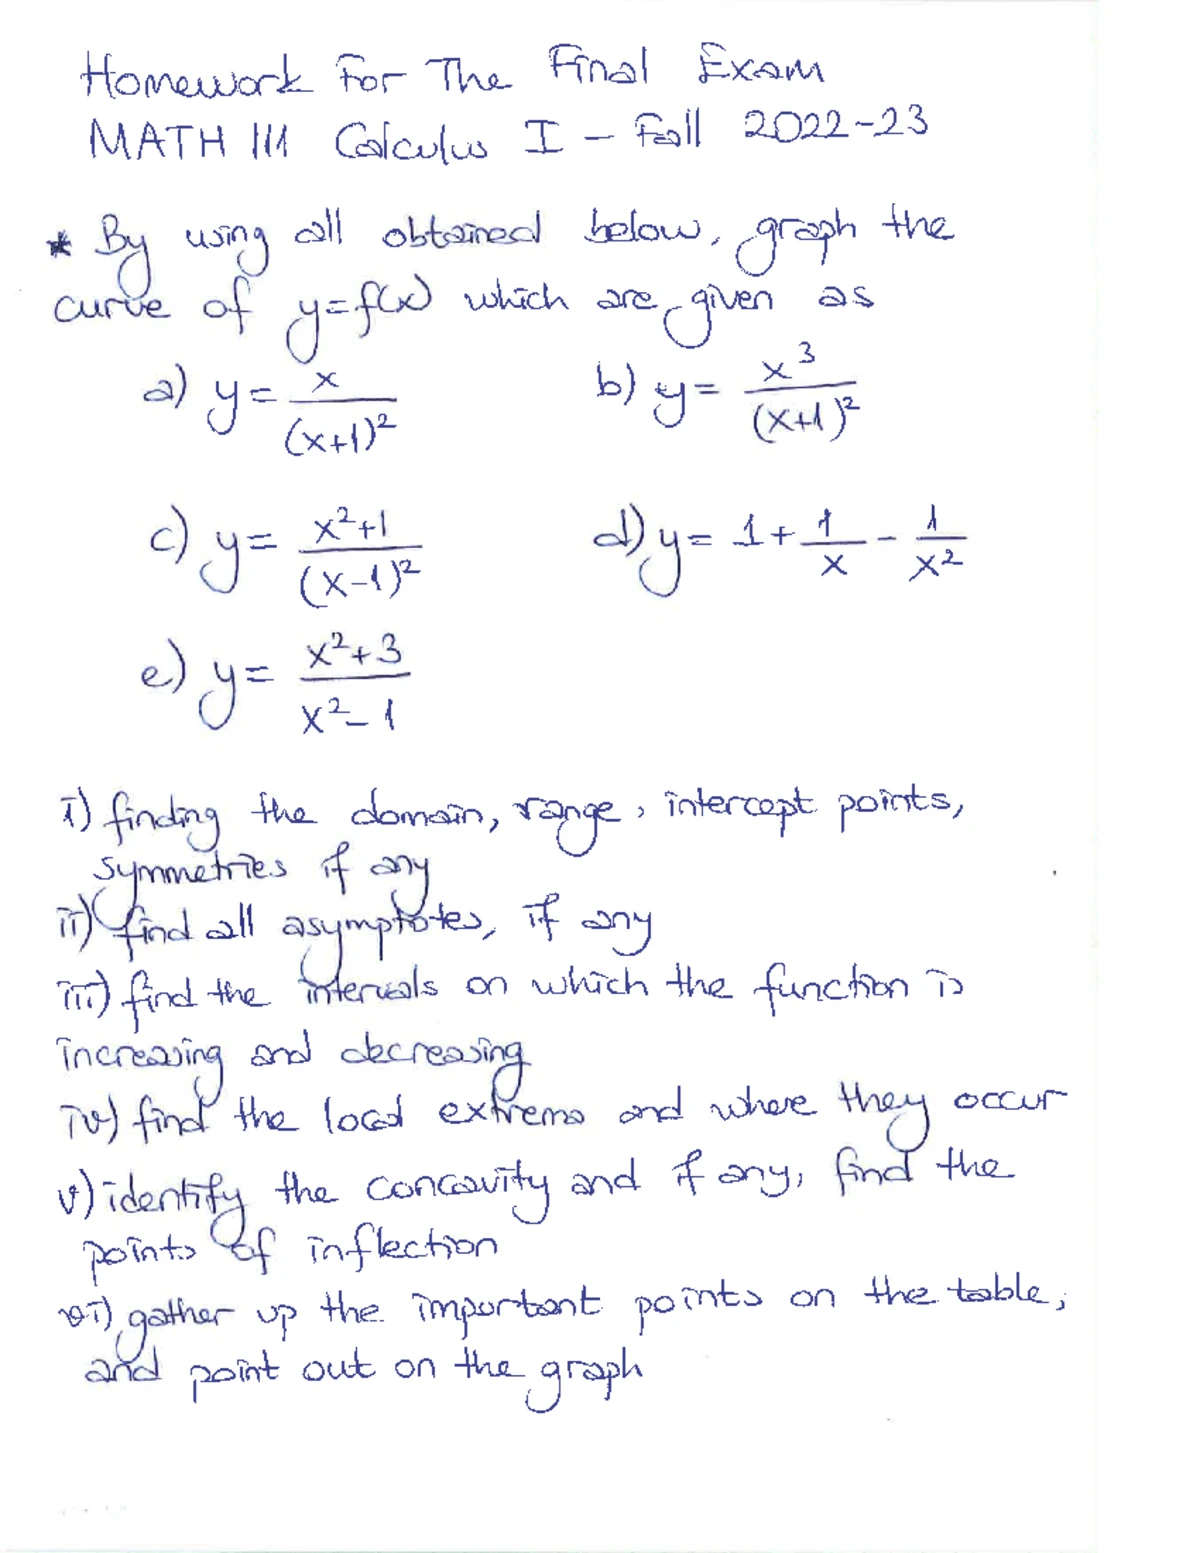 Homework For The Final Exam
MATH 111 Calculus I - Fall 2022-23
* By using all obtained below, graph the
curve of y=f(x) which are given as
a) y = x/(x+1)² b) y = x³/(x+1)²
c) y = (x²+1)/(x-1)² d) y = 1 + 1/x - 1/x²
e) y = (x²+3)/(x²-1)
i) finding the domain, range, intercept points,
symmetries if any
ii) find all asymptotes, if any
iii) find the intervals on which the function is
increasing and decreasing
iv) find the local extrema and where they occur
v) identify the concavity and if any, find the
points of inflection
vi) gather up the important points on the table,
and point out on the graph